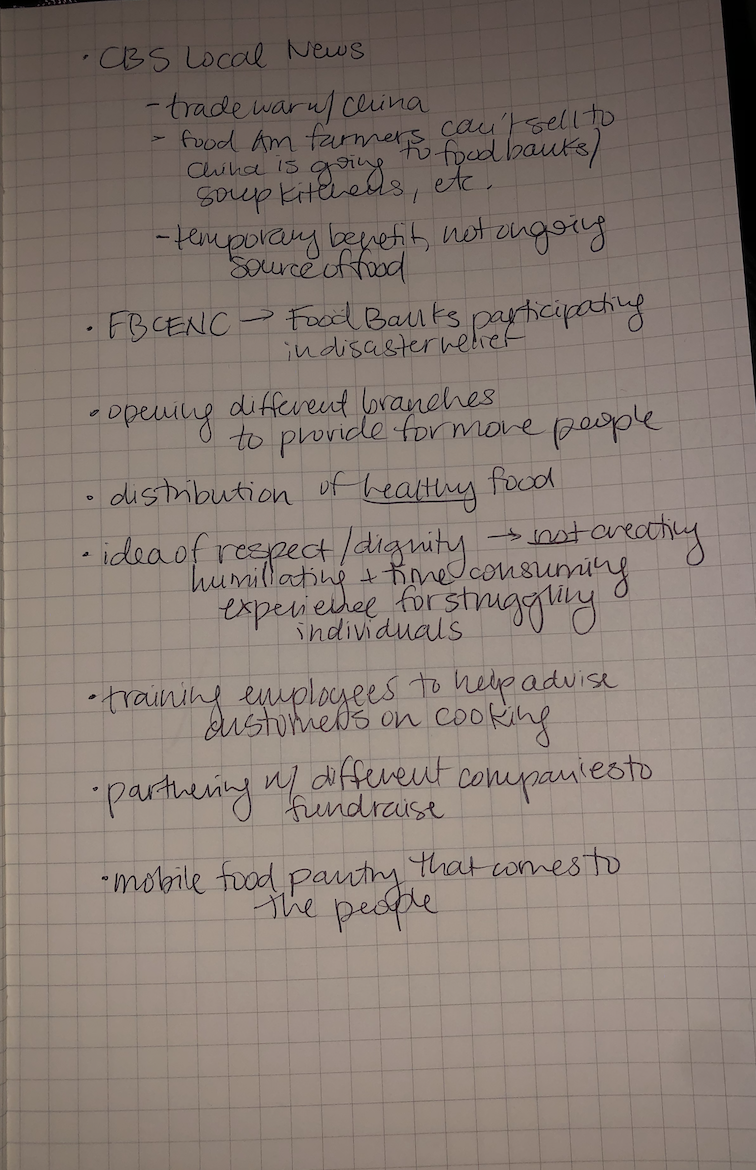 · CBS Local News
- trade war w/ China
- food Am farmers can't sell to
China is going to food banks/
soup kitchens, etc.
- temporary benefit, not ongoing
source of food
· FBCENC → Food Banks participating
in disaster relief
· opening different branches
to provide for more people
· distribution of healthy food
· idea of respect/dignity → not creating
humiliating + time consuming
experience for struggling
individuals
· training employees to help advise
customers on cooking
· partnering w/ different companies to
fundraise
· mobile food pantry that comes to
the people